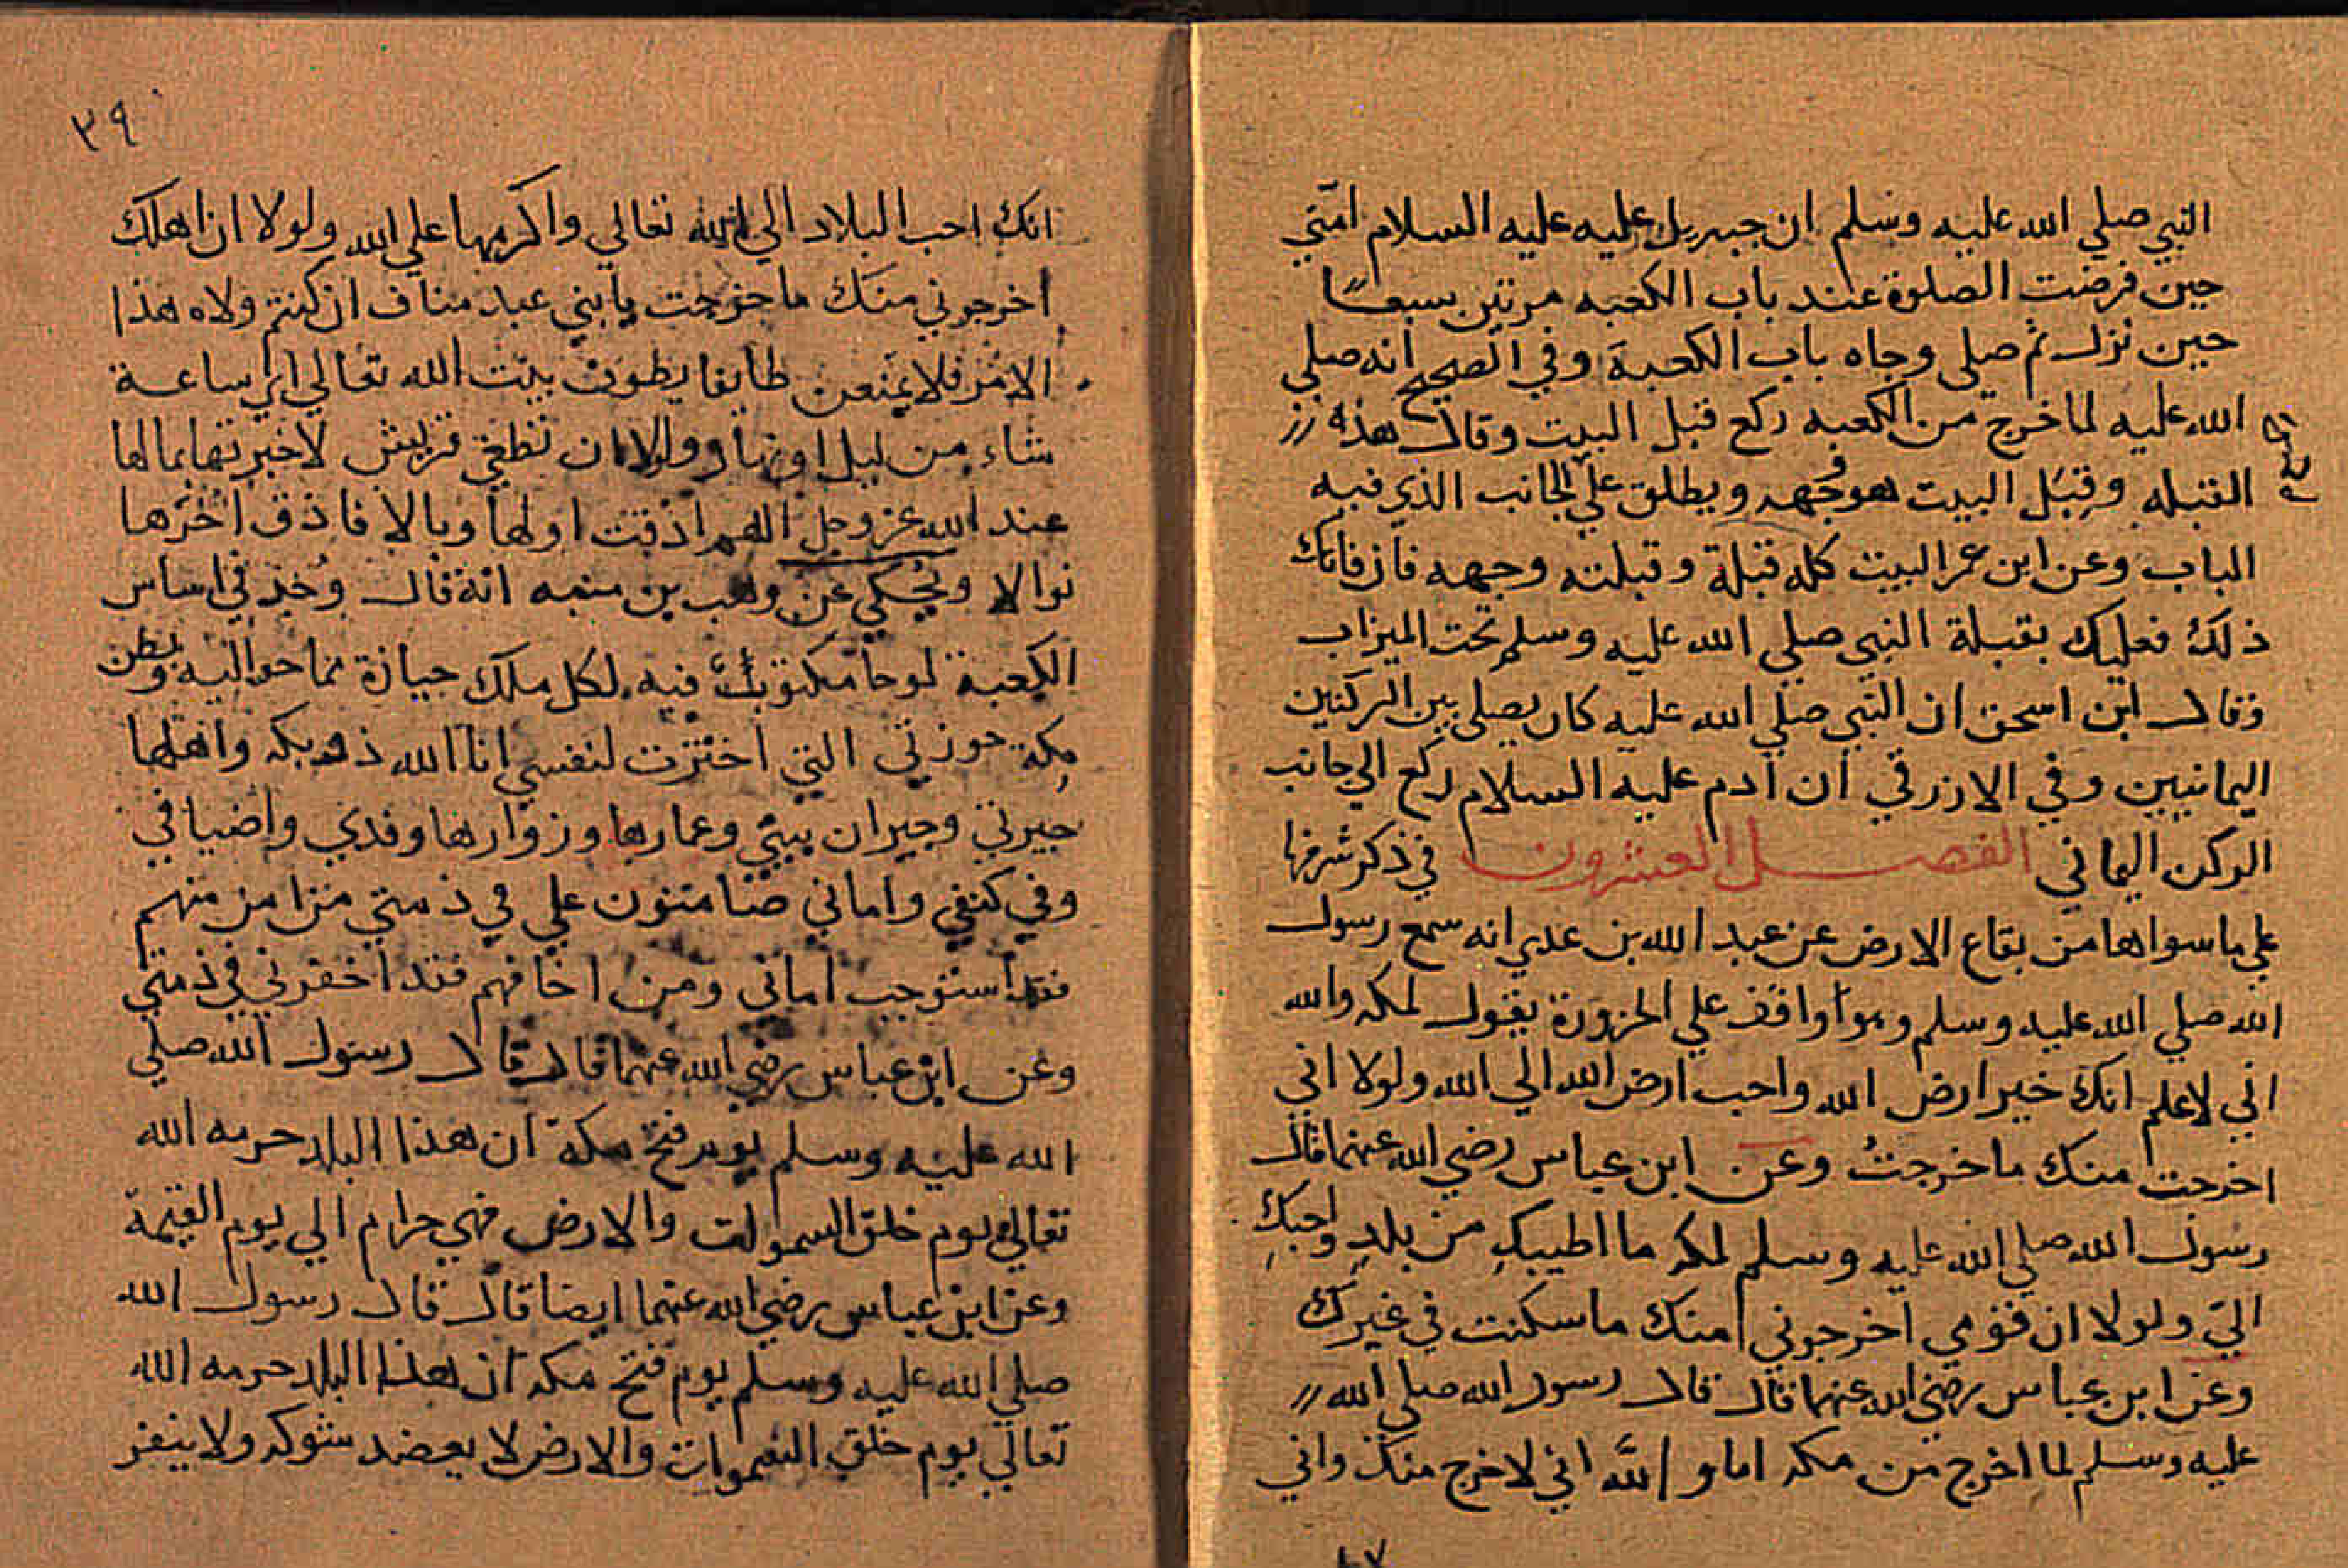 النبي صلي الله عليه وسلم ان جبريل عليه عليه السلام امّني
حين فرضت الصلوة عند باب الكعبه مرتين سبعًا
حين نزل ثم صلي وجاه باب الكعبة وفي الصحيح انه صلي
الله عليه لما خرج من الكعبه ركع قبل البيت وقال هذه
القبله وقِبَل البيت هو وجهه ويطلق علي الجانب الذي فيه
الباب وعن ابن عمر البيت كله قبلة وقبلته وجهه فان فاتك
ذلك فعليك بقبلة النبي صلي الله عليه وسلم تحت الميزاب
وقال ابن اسحق ان النبي صلي الله عليه كان يصلي بين الركنين
اليمانيين وفي الازرقي ان ادم عليه السلام ركع الي جانب
الركن اليماني الفصل العشرون في ذكر شرفها
علي ما سواها من بقاع الارض عن عبد الله بن عدي انه سمع رسول
الله صلي الله عليه وسلم وهو اواقف علي الحزورة يقول لمكه والله
اني لاعلم انك خير ارض الله واحب ارض الله الي الله ولولا اني
اخرجت منك ما خرجتُ وعن ابن عباس رضي الله عنهما قال
رسول الله صلي الله عليه وسلم لمكه ما اطيبكِ من بلدٍ واحبكِ
اليّ ولولا ان قومي اخرجوني منك ما سكنت في غيرك
وعن ابن عباس رضي الله عنهما قال قال رسول الله صلي الله
عليه وسلم لما اخرج من مكه اما و الله اني لاخرج منك واني
٣٩
انك احب البلاد الي الله تعالي واكرمها علي الله ولولا ان اهلك
اخرجوني منك ما خرجت يا بني عبد مناف ان كنتم ولاه هذا
الامر فلا يمنعن طايفا يطوف ببيت الله تعالي اي ساعة
شاء من ليل او نهار ولولا ان تطغي قريش لاخبرتها بما لها
عند الله عز وجل اللهم اذقت اولها وبالا فاذق اخرها
نوالا ويحكي عن وهب بن منبه انه قال وُجد في اساس
الكعبة لوحا مكتوبٌ فيه لكل ملك حيازة مما حواليه وبطن
مكة حوزتي التي اخترت لنفسي انا الله ذو بكه واهلها
جيرتي وجيران بيتي وعمارها وزوارها وفدي واضيافي
وفي كنفي واماني ضامنون علي في ذمتي من امن منهم
فقد استوجب اماني ومن اخافهم فقد اخفرني في ذمتي
وعن ابن عباس رضي الله عنهما قال قال رسول الله صلي
الله عليه وسلم يوم فتح مكة ان هذا البلد حرمه الله
تعالي يوم خلق السموات والارض فهي حرام الي يوم القيمة
وعن ابن عباس رضي الله عنهما ايضا قال قال رسول الله
صلي الله عليه وسلم يوم فتح مكه ان هذا البلد حرمه الله
تعالي يوم خلق السموات والارض لا يعضد شوكه ولا ينفر